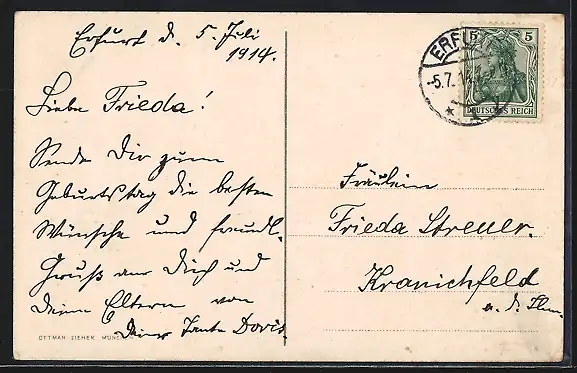 Erfurt d. 5. Juli
1914.
Liebe Frieda!
Sende Dir zum
Geburtstag die besten
Wünsche und freundl.
Gruß an Dich und
Deine Eltern von
Deiner Tante Doris
OTTMAR ZIEHER, MÜNCHEN
5 5
DEUTSCHES REICH
ERFU
-5.7.14
Fräulein
Frieda Streuer.
Kranichfeld
a. d. Ilm.